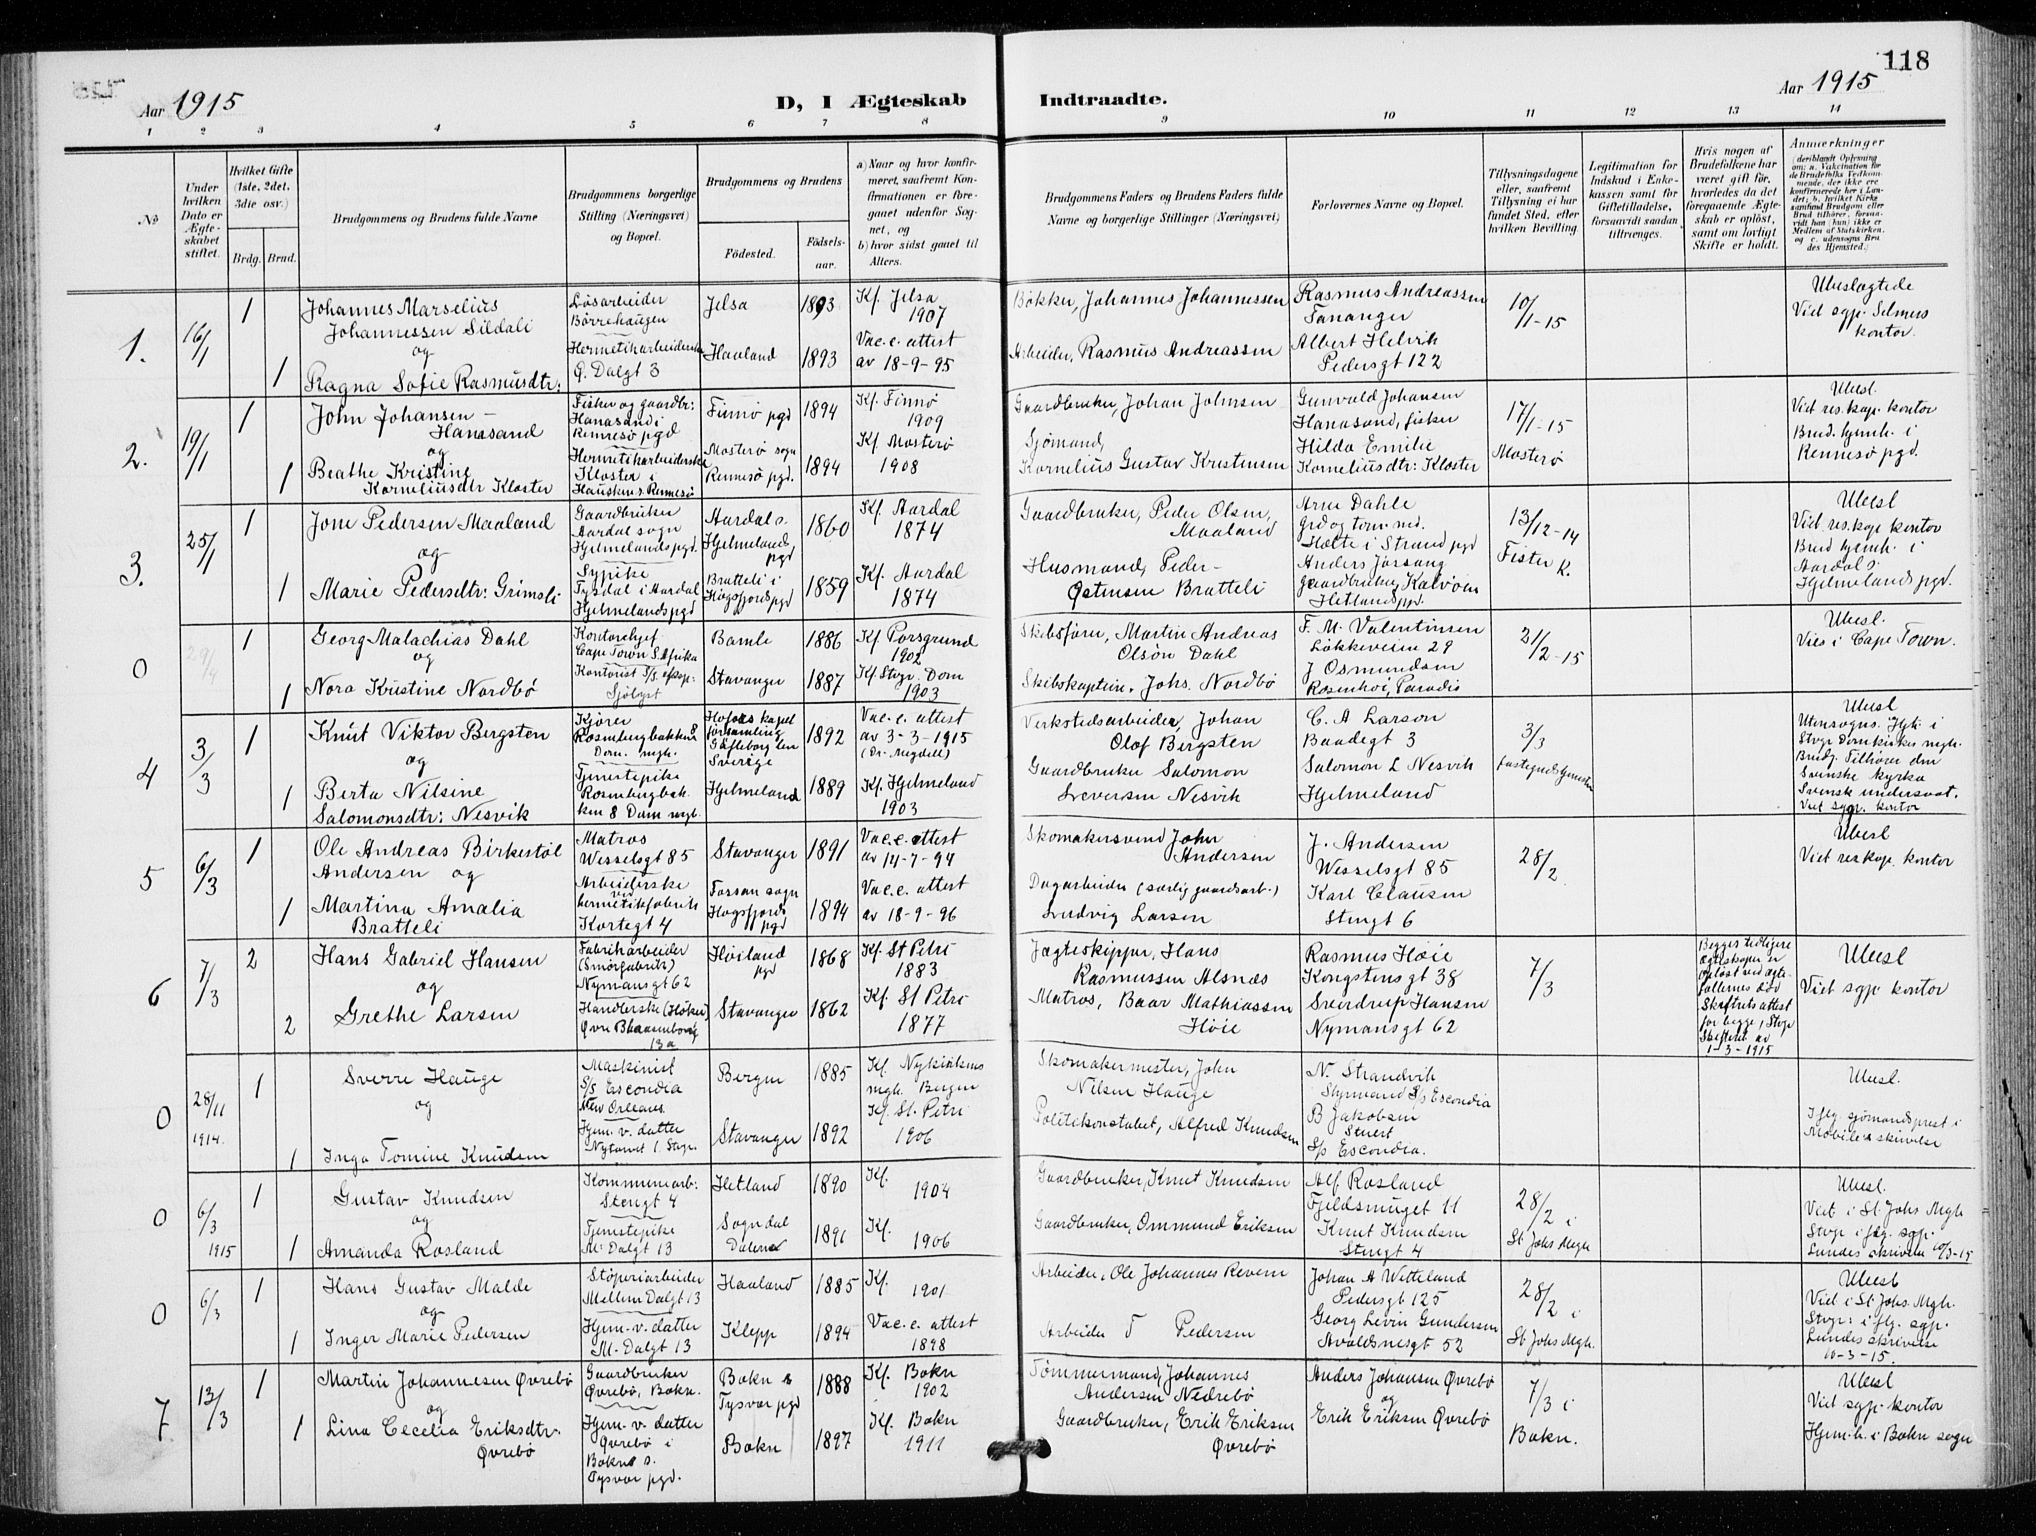 118
Aar 1915
D, I Ægteskab
Indtraadte.
Aar 1915
1 2 3 4 5 6 7 8 9 10 11 12 13 14
No
Under hvilken Dato er Ægteskabet stiftet.
Hvilket Gifte (1ste, 2det, 3die osv.)
Brdg. Brud.
Brudgommens og Brudens fulde Navne
Brudgommens borgerlige Stilling (Næringsvei) og Bopæl.
Brudgommens og Brudens
Fødested.
Fødselsaar.
a) Naar og hvor konfirmeret, saafremt Konfirmationen er foregaaet udenfor Sognet, og
b) hvor sidst gaaet til Alters.
Brudgommens Faders og Brudens Faders fulde Navne og borgerlige Stillinger (Næringsvei)
Forlovernes Navne og Bopæl.
Tillysningsdagene eller, saafremt Tillysning ei har fundet Sted, efter hvilken Bevilling.
Legitimation for Indskud i Enkekassen samt for Giftetilladelse, forsaavidt saadan tiltrænges.
Hvis nogen af Brudefolkene har været gift før, hvorledes da det foregaaende Ægteskab er opløst, samt om lovligt Skifte er holdt.
Anmærkninger
(deriblandt Oplysning om: a. Vakcination for de Brudefolks Vedkommende, der ikke ere konfirmerede her i Landet; b. hvilket Kirkesamfund Brudgom eller Brud tilhører, forsaavidt han (hun) ikke er Medlem af Statskirken, og c. udensogns Brudes Hjemsted.)
1.
16/1
1
1
Johannes Marselius
Johannessen Sildali
og
Ragna Sofie Rasmusdtr:
Løsarbeider
Børrehaugen
Hermetikarbeiderske
Ø. Dalgt 3
Jelsa 1893
Haaland 1893
Kf. Jelsa
1907
Vac. c. attest
av 18-9-95
Bøkker, Johannes Johannessen
Arbeider, Rasmus Andreassen
Rasmus Andreassen
Tananger
Albert Helvik
Pedersgt 122
10/1-15
Ubeslægtede
Viet sgp. Selmers
kontor.
2.
19/1
1
1
John Johansen -
Hanasand
og
Beathe Kristine
Korneliusdtr Kloster
Fisker og gaardbr:
Hanasand i
Rennesø pgd
Hermetikarbeiderske
Kloster i
Hausken s. Rennesø
Finnø pgd 1894
Mosterø sogn
Rennesø pgd. 1894
Kf. Finnø
1909
Kf Mosterø
1908
Gaardbruker, Johan Johnsen
Sjømand,
Kornelius Gustav Kristensen
Gunvald Johansen
Hanasand, fisker
Hilda Emilie
Korneliusdtr: Kloster
17/1-15
Mosterø
Ubesl.
Viet res. kap. kontor
Brud. hjemh. i
Rennesø pgd.
3.
25/1
1
1
Jone Pedersen Maaland
og
Marie Pedersdtr: Grimsli
Gaardbruker
Aardal sogn
Hjelmelands pgd.
Sypike
Tysdal i Aardal
Hjelmelands pgd
Aardal s.
Hjelmelands
pgd 1860
Bratteli i
Høgsfjord pgd 1859
Kf. Aardal
1874
Kf. Aardal
1874
Gaardbruker, Peder Olsen,
Maaland
Husmand, Peder -
Østensen Bratteli
Arne Dahle
grd og tom. md.
Holte i Strand pgd
Anders Jøssang
gaardbruker, Kalvøen
Hetlands pgd.
13/12-14
Fister k.
Ubesl
Viet res. kap kontor
Brud hjemh. i
Aardal s.
Hjelmelands pgd.
0
29/4
1
1
Georg Malachias Dahl
og
Nora Kristine Nordbø
Kontorchef
Cape Town S. Afrika
Kontorist
Sjølyst
Bamle 1886
Stavanger 1887
Kf Porsgrund
1902
Kf. Stvgr. Dom
1903
Skibsfører, Martin Andreas
Olsøn Dahl
Skibskaptein. Johs. Nordbø
F. M. Valentinsen
Løkkeveien 29
J Osmundsen
Rosenhøi, Paradis
21/2-15
Ubesl.
Vies i Cape Town.
4
3/3
1
1
Knut Viktor Bergsten
og
Berta Nilsine
Salomonsdtr: Nesvik
Kjører
Rosenbergbakken 8
Dom. mgh.
Tjenestepike
Rosenbergbakken 8 Dom mgh.
Hofors kapel
församling
Gäfleborg län
Sverige 1892
Hjelmeland 1889
Vac. c. attest
av 3-3-1915
Kf. Hjelmeland
1903
Verkstedsarbeider, Johan
Olof Bergsten
Gaardbruker Salomon
Seversen Nesvik
C. A Larson
Baadegt 3
Salomon L Nesvik
Hjelmeland
3/3
Ubesl
Utensogns. Hjh. i
Stvgr Domkirkes mgh.
Brudg. Tilhører den
Svenske kyrka
Svensk undersaat.
Viet sgp. kontor
5
6/3
1
1
Ole Andreas Birkestøl
Andersen og
Martina Amalia
Bratteli
Matros
Wesselsgt 85
Arbeiderske
ved
hermetikfabrik
Kortegt 4
Stavanger 1891
Fossan sogn
Høgsfjords
pgd 1894
Vac. c. attest
av 14-7-94
Vac. c. attest
av 18-9-96
Skomakersvend John
Andersen
Dagarbeider (særlig gaardsarb.)
Ludvig Larsen
J. Andersen
Wesselsgt 85
Karl Clausen
Stengt 6
28/2
Ubesl
Viet res kap. kontor
6
7/3
2
2
Hans Gabriel Hansen
og
Grethe Larsen
Fabrikarbeider
(Smørfabrik)
Nymansgt 62
Handlerske (Høker)
Øvre Blaasenborg
13a
Høiland
pgd 1868
Stavanger 1862
Kf. St Petri
1883
Kf. St Petri
1877
Jægteskipper, Hans
Rasmussen Alsnæs
Matros, Baar Mathiassen
Høie
Rasmus Høie
Kongstensgt 38
Sverdrup Hansen
Nymansgt 62
7/3
Begges tidligere
ægteskaper er
opløst ved ægtefællernes død
Skifterets attest
for begge, Stvgr
Skifteret av
1-3-1915
Ubesl
Viet sgp kontor
0
28/11
1914.
1
1
Sverre Hauge
og
Inga Tomine Knudsen
Maskinist
S/S Escondia
New Orleans.
Hjem. v. datter
Stavanger 1892
Bergen 1885
Kf. Nykirkens
mgh. Bergen
Kf. St. Petri
1906
Skomakermester, John
Nilsen Hauge
Politikonstabel, Alfred Knudsen
N. Strandvik
Styrmand S/S Escondia
B Jakobsen
Stuert
S/S Escondia.
Ubesl.
I flg. sjømandsprest i
Mobiles skrivelse
0
6/3
1915
1
1
Gustav Knudsen
og
Amanda Rosland
Kommunearb:
Stengt 4
Tjenestepike
M. Dalgt 13
Hetland 1890
Sogndal
Dalerne 1891
Kf.
1904
Kf.
1906
Gaardbruker, Knut Knudsen
Gaardbruker, Ommund Eriksen
Alf. Rosland
Fjeldsmuget 11
Knut Knudsen
Stengt 4
28/2 i
St Johs Mgh
Ubesl.
Viet i St Johs Mgh
Stvgr i flg. sgp.
Lundes skrivelse 10/3-15
0
6/3
1
1
Hans Gustav Malde
og
Inger Marie Pedersen
Støperiarbeider
Mellem Dalgt 13
Hjem. v. datter
M. Dalgt 13
Haaland 1885
Klepp 1894
Kf.
1901
Vac. c. attest
1898
Arbeider, Ole Johannes Revem
Arbeider T Pedersen
Johan A Witteland
Pedersgt 125
Georg Levin Gundersen
Avaldsnesgt 52
28/2 i
St Johs Mgh.
Ubesl
Viet i St. Johs. Mgh.
Stvgr: i flg. sgp.
Lundes skrivelse
10-3-15.
7
13/3
1
1
Martin Johannesen Øvrebø
og
Lina Cecelia Eriksdtr.
Øvrebø
Gaardbruker
Øvrebø, Bokn.
Hjem. v. datter
Øvrebø i
Bokns s.
Tysvær pgd.
Bokn s
Tysvær pgd 1888
Bokn 1897
Kf. Bokn
1902
Kf. Bokn
1911
Tømmermand, Johannes
Andersen Nedrebø
Gaardbruker, Erik Eriksen
Øvrebø
Anders Johansen Øvrebø
og
Erik Eriksen Øvrebø
7/3 i
Bokn.
Ubesl
Viet sgp. kontor
Hjem. h. i Bokn sogn